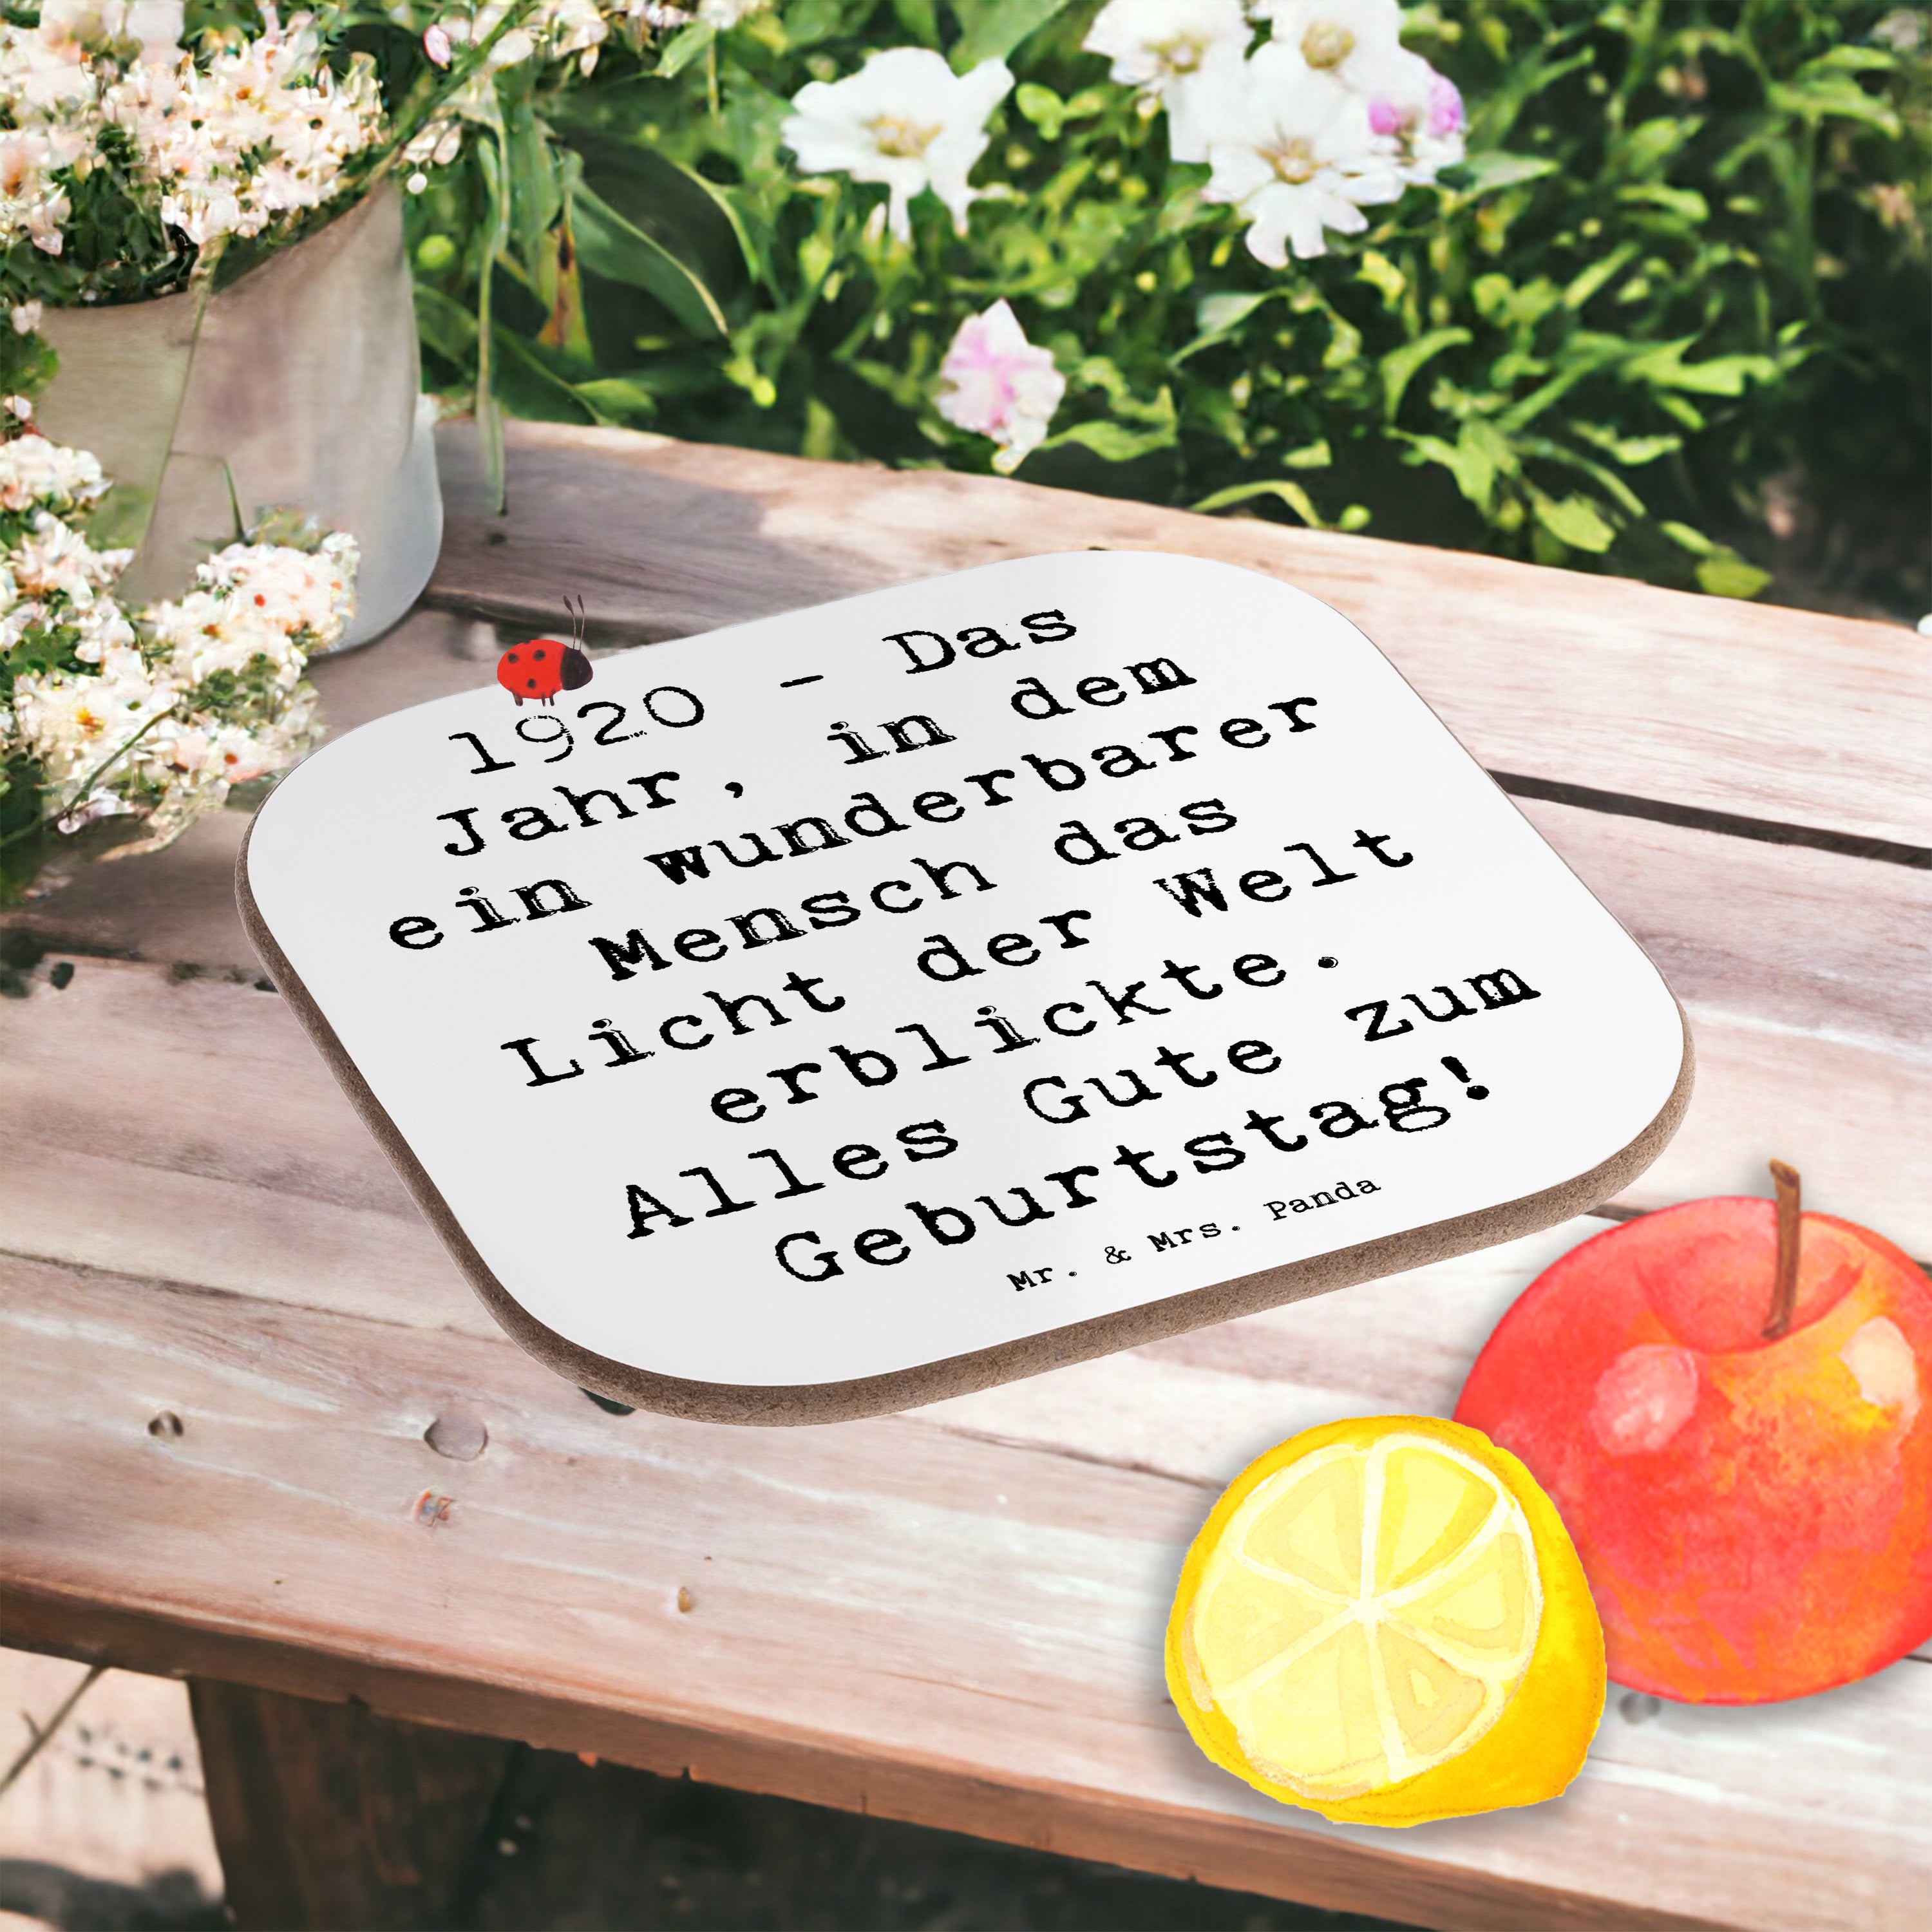 1920 - Das
Jahr, in dem
ein wunderbarer
Mensch das
Licht der Welt
erblickte.
Alles Gute zum
Geburtstag!
Mr. & Mrs. Panda